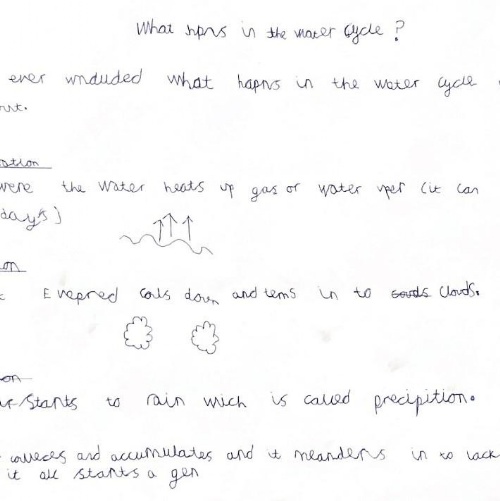 What hpns in the water cycle?
ever wnduded what hapns in the water cycle
ation
were the water heats up gas or water vper (it can
days)
on
Evapred cools down and terns in to clouds.
on
starts to rain wich is called precipition.
colleces and accumulates and it meanders in to lack
it all starts a gen